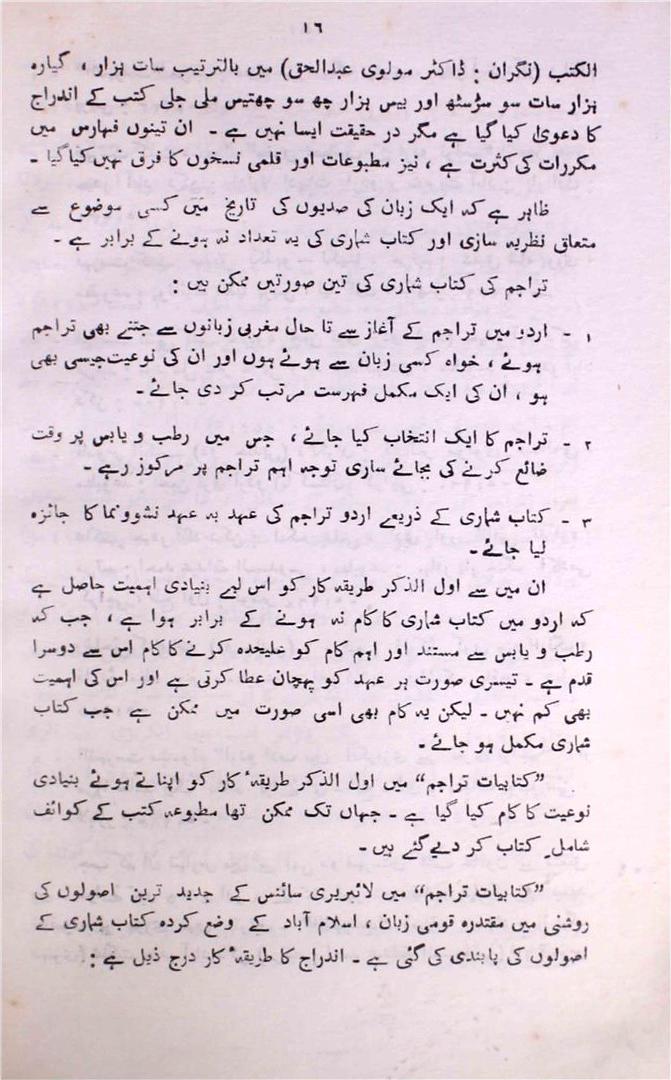 ١٦
الکتب (نگران : ڈاکٹر مولوی عبدالحق) میں بالترتیب سات ہزار ، گیارہ
ہزار سات سو سڑسٹھ اور بیس ہزار چھ سو چھتیس ملی جلی کتب کے اندراج
کا دعویٰ کیا گیا ہے مگر در حقیقت ایسا نہیں ہے ۔ ان تینوں فہارس میں
مکررات کی کثرت ہے ، نیز مطبوعات اور قلمی نسخوں کا فرق نہیں کیا گیا ۔
ظاہر ہے کہ ایک زبان کی صدیوں کی تاریخ میں کسی موضوع سے
متعلق نظریہ سازی اور کتاب شماری کی یہ تعداد نہ ہونے کے برابر ہے ۔
تراجم کی کتاب شماری کی تین صورتیں ممکن ہیں :
۱ - اردو میں تراجم کے آغاز سے تا حال مغربی زبانوں سے جتنے بھی تراجم
ہوئے ، خواہ کسی زبان سے ہوئے ہوں اور ان کی نوعیت جیسی بھی
ہو ، ان کی ایک مکمل فہرست مرتب کر دی جائے ۔
۲ - تراجم کا ایک انتخاب کیا جائے ، جس میں رطب و یابس پر وقت
ضائع کرنے کی بجائے ساری توجہ اہم تراجم پر مرکوز رہے ۔
۳ - کتاب شماری کے ذریعے اردو تراجم کی عہد بہ عہد نشوونما کا جائزہ
لیا جائے ۔
ان میں سے اول الذکر طریقہ کار کو اس لیے بنیادی اہمیت حاصل ہے
کہ اردو میں کتاب شماری کا کام نہ ہونے کے برابر ہوا ہے ، جب کہ
رطب و یابس سے مستند اور اہم کام کو علیحدہ کرنے کا کام اس سے دوسرا
قدم ہے ۔ تیسری صورت ہر عہد کو پہچان عطا کرتی ہے اور اس کی اہمیت
بھی کم نہیں ۔ لیکن یہ کام بھی اسی صورت میں ممکن ہے جب کتاب
شماری مکمل ہو جائے ۔
”کتابیات تراجم“ میں اول الذکر طریقۂ کار کو اپناتے ہوئے بنیادی
نوعیت کا کام کیا گیا ہے ۔ جہاں تک ممکن تھا مطبوعہ کتب کے کوائف
شامل کتاب کر دیے گئے ہیں ۔
”کتابیات تراجم“ میں لائبریری سائنس کے جدید ترین اصولوں کی
روشنی میں مقتدرہ قومی زبان ، اسلام آباد کے وضع کردہ کتاب شماری کے
اصولوں کی پابندی کی گئی ہے ۔ اندراج کا طریقۂ کار درج ذیل ہے :